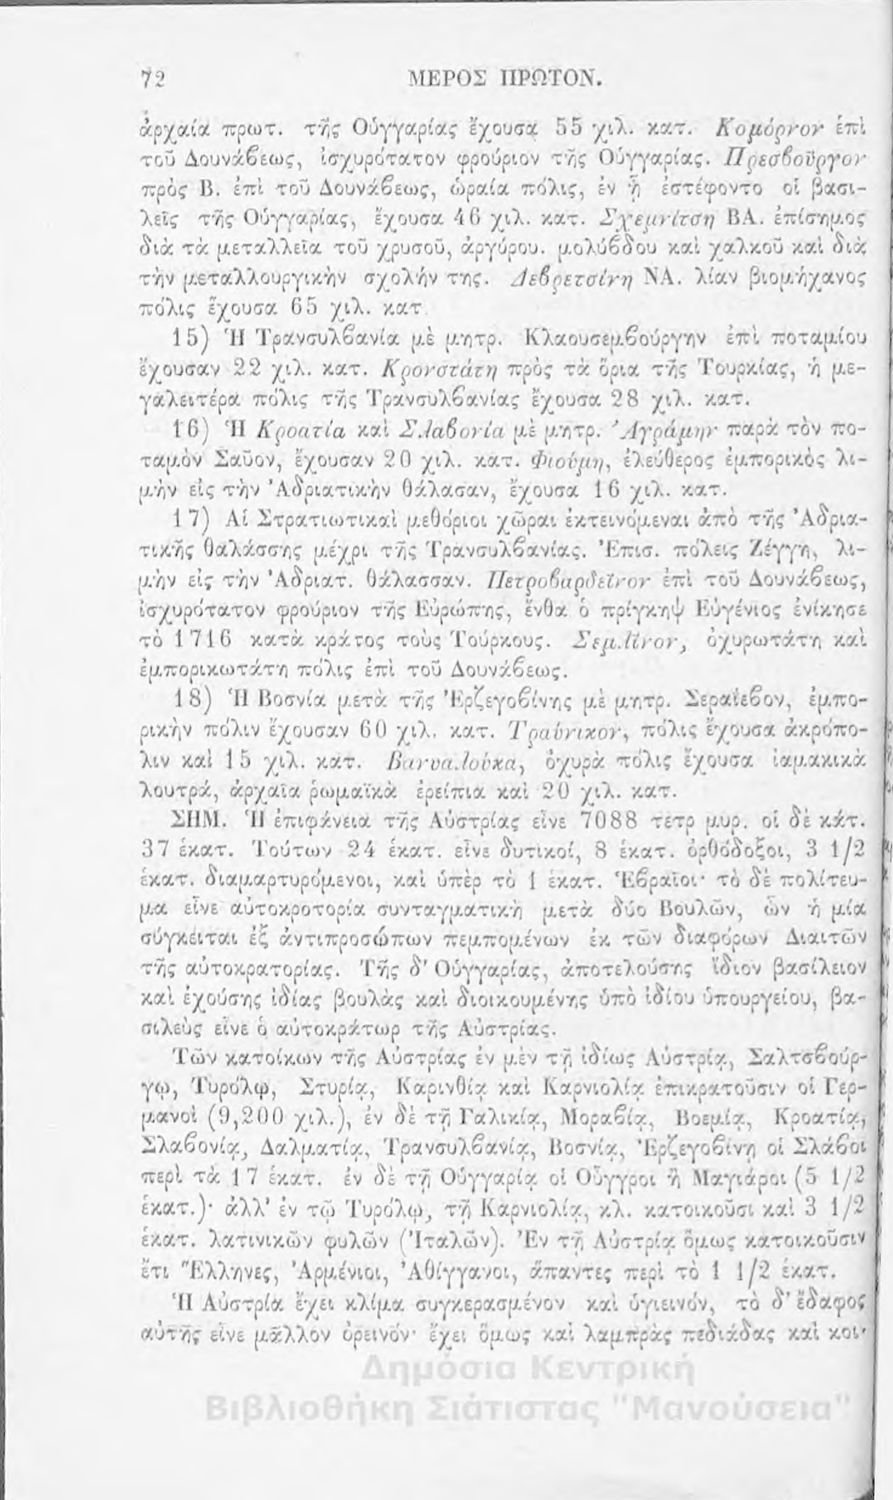 72 ΜΕΡΟΣ ΠΡΩΤΟΝ.
ἀρχαία πρωτ. τῆς Οὑγγαρίας ἔχουσα 55 χιλ. κατ. Κομόρνον ἐπὶ
τοῦ Δουνάβεως, ἰσχυρότατον φρούριον τῆς Οὑγγαρίας. Πρεσβοῦργον
πρὸς Β. ἐπὶ τοῦ Δουνάβεως, ὡραία πόλις, ἐν ᾗ ἐστέφοντο οἱ βασι-
λεῖς τῆς Οὑγγαρίας, ἔχουσα 46 χιλ. κατ. Σχεμνίτση ΒΑ. ἐπίσημος
διὰ τὰ μεταλλεῖα τοῦ χρυσοῦ, ἀργύρου. μολύβδου καὶ χαλκοῦ καὶ διὰ
τὴν μεταλλουργικὴν σχολήν της. Δεβρετσίνη ΝΑ. λίαν βιομήχανος
πόλις ἔχουσα 65 χιλ. κατ
15) Ἡ Τρανσυλβανία μὲ μητρ. Κλαουσεμβούργην ἐπὶ ποταμίου
ἔχουσαν 22 χιλ. κατ. Κρονστάτη πρὸς τὰ ὅρια τῆς Τουρκίας, ἡ με-
γαλειτέρα πόλις τῆς Τρανσυλβανίας ἔχουσα 28 χιλ. κατ.
16) Ἡ Κροατία καὶ Σλαβονία μὲ μητρ. Ἀγράμην παρὰ τὸν πο-
ταμὸν Σαῦον, ἔχουσαν 20 χιλ. κατ. Φιούμη, ἐλεύθερος ἐμπορικὸς λι-
μὴν εἰς τὴν Ἀδριατικὴν θάλασαν, ἔχουσα 16 χιλ. κατ.
17) Αἱ Στρατιωτικαὶ μεθόριοι χῶραι ἐκτεινόμεναι ἀπὸ τῆς Ἀδρια-
τικῆς θαλάσσης μέχρι τῆς Τρανσυλβανίας. Ἐπισ. πόλεις Ζέγγη, λι-
μὴν εἰς τὴν Ἀδριατ. θάλασσαν. Πετροβαρδεῖνον ἐπὶ τοῦ Δουνάβεως,
ἰσχυρότατον φρούριον τῆς Εὐρώπης, ἔνθα ὁ πρίγκηψ Εὐγένιος ἐνίκησε
τὸ 1716 κατὰ κράτος τοὺς Τούρκους. Σεμλῖνον, ὀχυρωτάτη καὶ
ἐμπορικωτάτη πόλις ἐπὶ τοῦ Δουνάβεως.
18) Ἡ Βοσνία μετὰ τῆς Ἐρζεγοβίνης μὲ μητρ. Σεραΐεβον, ἐμπο-
ρικὴν πόλιν ἔχουσαν 60 χιλ. κατ. Τραύνικον, πόλις ἔχουσα ἀκρόπο-
λιν καὶ 15 χιλ. κατ. Βανναλούκα, ὀχυρὰ πόλις ἔχουσα ἰαμακικὰ
λουτρά, ἀρχαῖα ῥωμαϊκὰ ἐρείπια καὶ 20 χιλ. κατ.
ΣΗΜ. Ἡ ἐπιφάνεια τῆς Αὐστρίας εἶνε 7088 τετρ μυρ. οἱ δὲ κάτ.
37 ἑκατ. Τούτων 24 ἑκατ. εἶνε δυτικοί, 8 ἑκατ. ὀρθόδοξοι, 3 1/2
ἑκατ. διαμαρτυρόμενοι, καὶ ὑπὲρ τὸ 1 ἑκατ. Ἑβραῖοι· τὸ δὲ πολίτευ-
μα εἶνε αὐτοκροτορία συνταγματικὴ μετὰ δύο Βουλῶν, ὧν ἡ μία
σύγκειται ἐξ ἀντιπροσώπων πεμπομένων ἐκ τῶν διαφόρων Διαιτῶν
τῆς αὐτοκρατορίας. Τῆς δ' Οὑγγαρίας, ἀποτελούσης ἴδιον βασίλειον
καὶ ἐχούσης ἰδίας βουλὰς καὶ διοικουμένης ὑπὸ ἰδίου ὑπουργείου, βα-
σιλεὺς εἶνε ὁ αὐτοκράτωρ τῆς Αὐστρίας.
Τῶν κατοίκων τῆς Αὐστρίας ἐν μὲν τῇ ἰδίως Αὐστρίᾳ, Σαλτσβούρ-
γῳ, Τυρόλῳ, Στυρίᾳ, Καρινθίᾳ καὶ Καρνιολίᾳ ἐπικρατοῦσιν οἱ Γερ-
μανοὶ (9,200 χιλ.), ἐν δὲ τῇ Γαλικίᾳ, Μοραβίᾳ, Βοεμίᾳ, Κροατίᾳ,
Σλαβονίᾳ, Δαλματίᾳ, Τρανσυλβανίᾳ, Βοσνίᾳ, Ἐρζεγοβίνῃ οἱ Σλάβοι
περὶ τὰ 17 ἑκατ. ἐν δὲ τῇ Οὑγγαρίᾳ οἱ Οὗγγροι ἢ Μαγιάροι (5 1/2
ἑκατ.)· ἀλλ' ἐν τῷ Τυρόλῳ, τῇ Καρνιολίᾳ, κλ. κατοικοῦσι καὶ 3 1/2
ἑκατ. λατινικῶν φυλῶν (Ἰταλῶν). Ἐν τῇ Αὐστρίᾳ ὅμως κατοικοῦσιν
ἔτι Ἕλληνες, Ἀρμένιοι, Ἀθίγγανοι, ἅπαντες περὶ τὸ 1 1/2 ἑκατ.
Ἡ Αὐστρία ἔχει κλίμα συγκερασμένον καὶ ὑγιεινόν, τὸ δ' ἔδαφος
αὐτῆς εἶνε μᾶλλον ὀρεινόν· ἔχει ὅμως καὶ λαμπρὰς πεδιάδας καὶ κοι-
Δημόσια Κεντρική
Βιβλιοθήκη Σιάτιστας "Μανούσεια"